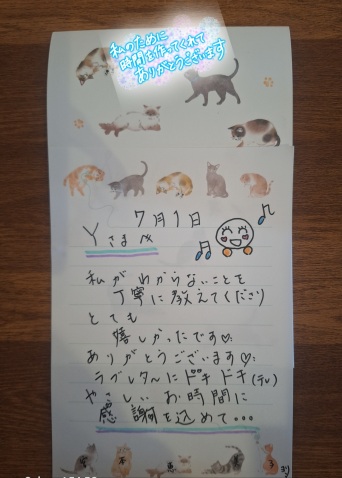 私のために
時間を作ってくれて
ありがとうございます
7月1日
Yさまへ
私がわからないことを
丁寧に教えてくださり
とても
嬉しかったです♡
ありがとうございます♡
ラブレターにドキドキ(テレ)
やさしいお時間に
感謝を込めて…